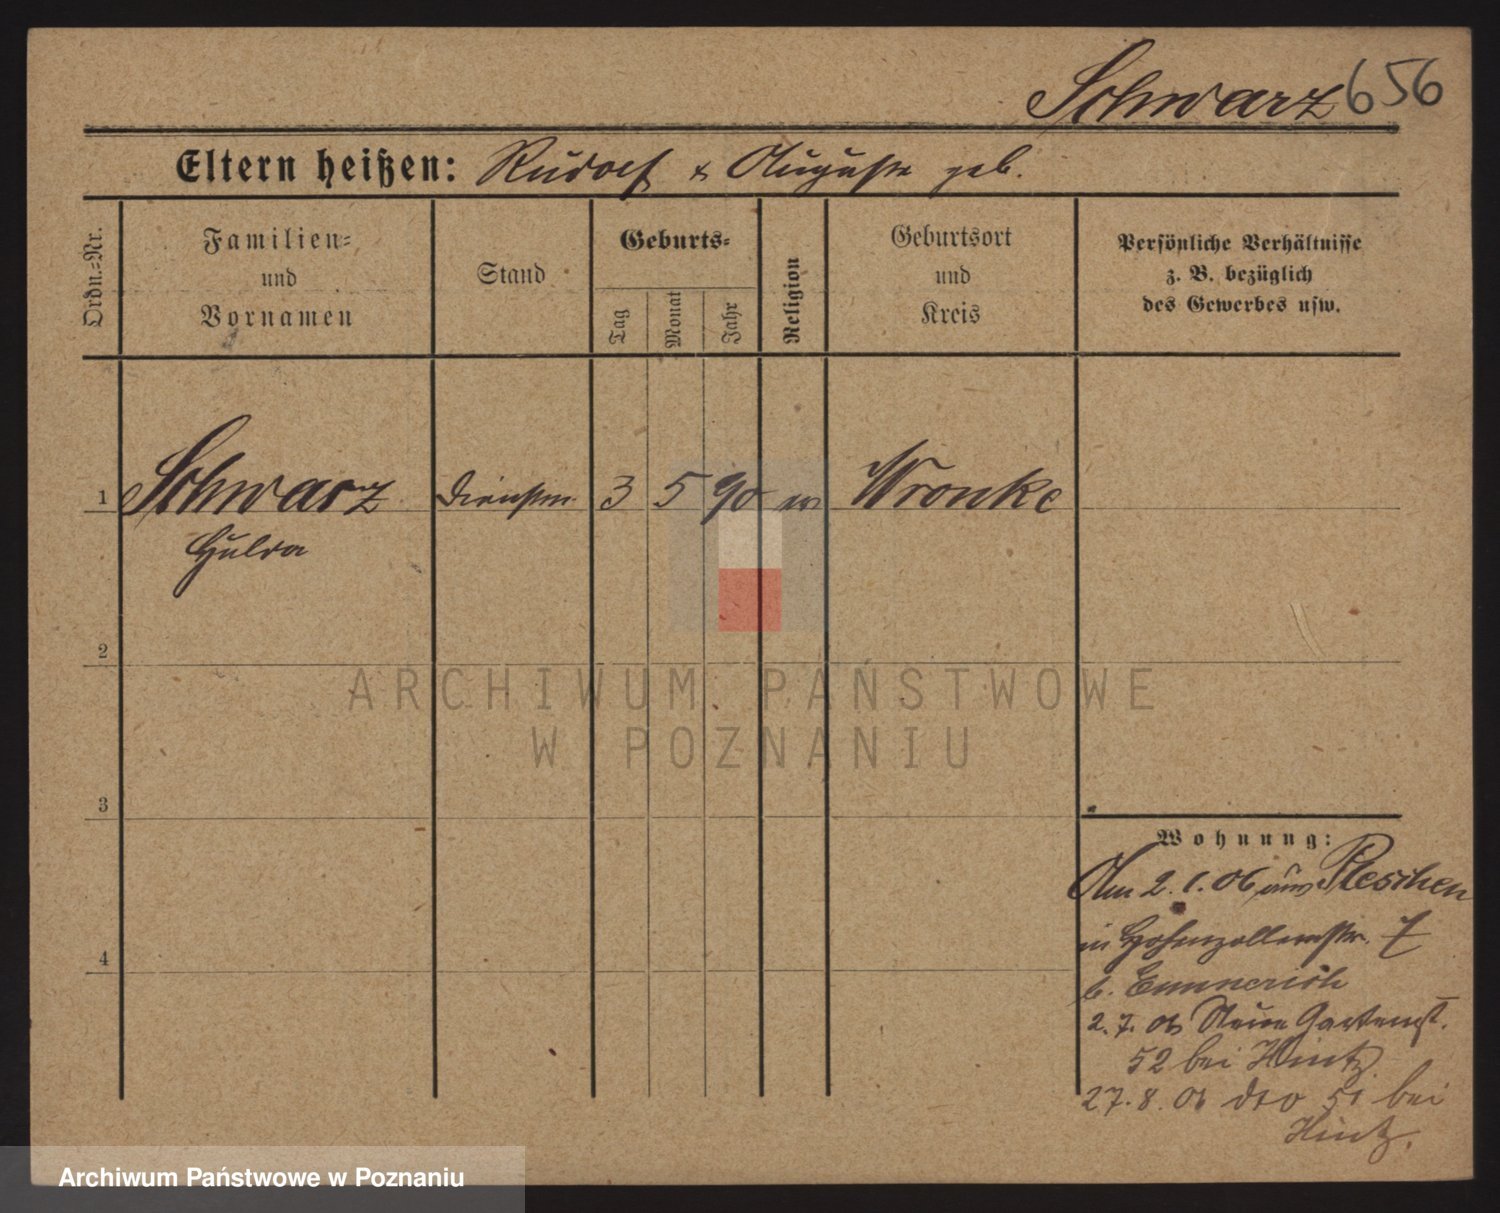 Schwarz 656
Eltern heißen: Rudolf & Auguste geb.
Ordn.-Nr.
Familien-
und
Vornamen
Stand
Geburts-
Tag
Monat
Jahr
Religion
Geburtsort
und
Kreis
Persönliche Verhältnisse
z. B. bezüglich
des Gewerbes usw.
1 Schwarz Dienstm. 3 5 90 ev Wronke
Hulda
2
3
4
Wohnung:
Am 2.1.06 aus Pleschen
in Hohenzollernstr. 7
b. Emmerich
2.7.06 Neue Gartenst.
52 bei Hintz.
27.8.06 dto 51 bei
Hintz.
ARCHIWUM PAŃSTWOWE
W POZNANIU
Archiwum Państwowe w Poznaniu